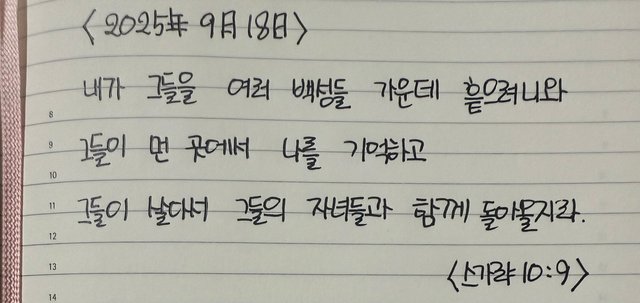 <2025年 9月 18日>
내가 그들을 여러 백성들 가운데 흩으려니와
8
9 그들이 먼 곳에서 나를 기억하고
10
11 그들이 살아서 그들의 자녀들과 함께 돌아올지라.
12
13 <스가랴 10:9>
14